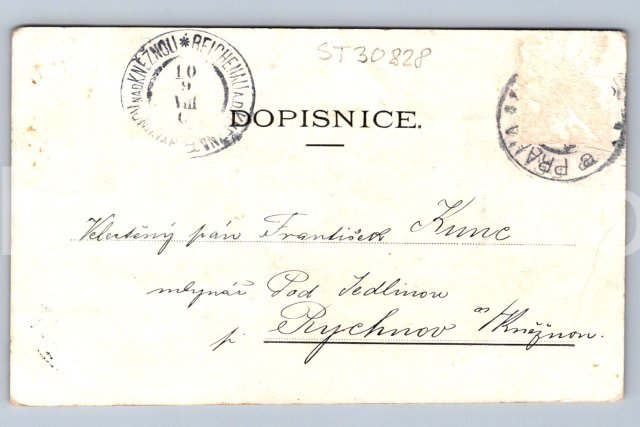 ST30828
REICHENAU A.D.
NAD KNĚŽNOU
10
9
VIII
DOPISNICE.
PRAHA
Velectěný pán František Kunc
mlynář Pod Jedlinou
p. Rychnov n/Kněžnou.